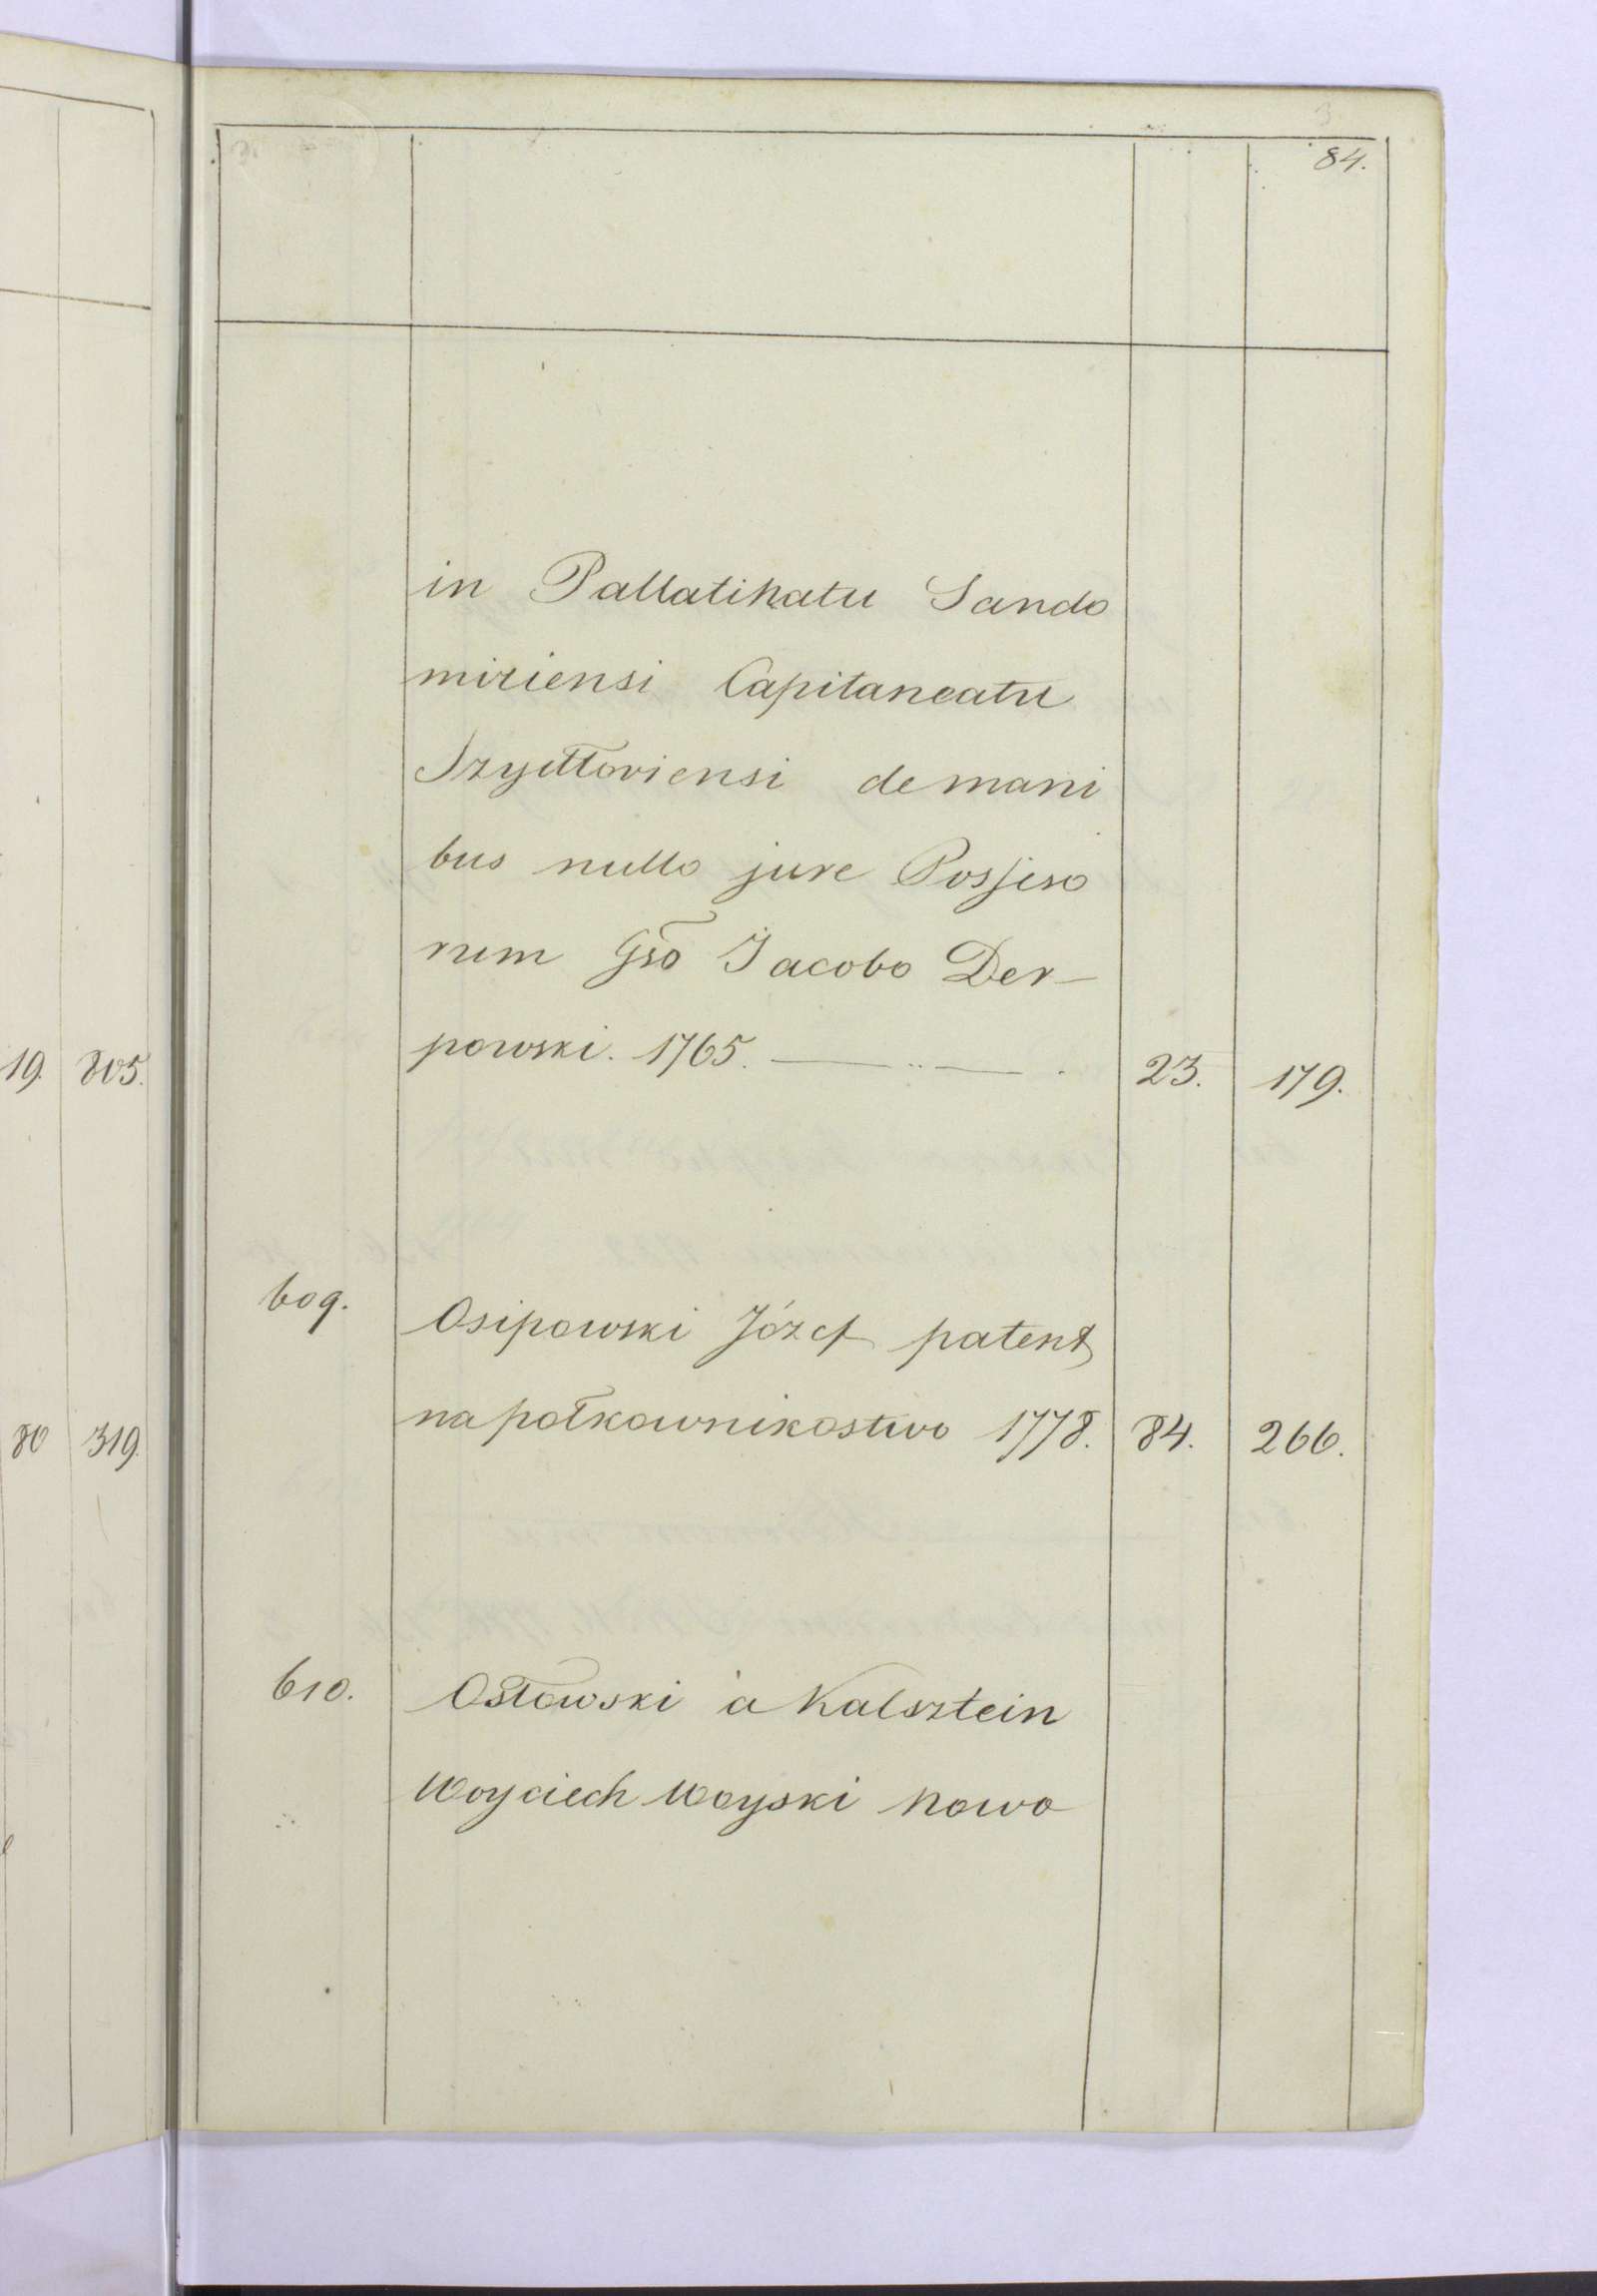 84.
in Pallatinatu Sando
miriensi Capitaneatu
Szydłoviensi de mani
bus nullo jure Posseso
rum Gso Jacobo Der-
powski. 1765. 23. 179.
19. 805.
609. Osipowski Józef patent
na połkownikostwo 1778. 84. 266.
80 319.
610. Ostowski a Kalsztein
Woyciech Woyski nowo